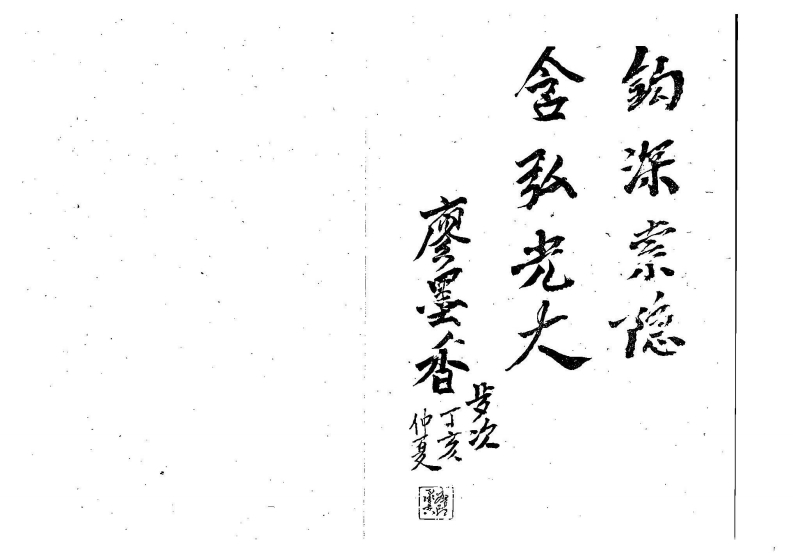 鈎深索隐
含弘光大
廖墨香
岁次
丁亥
仲夏